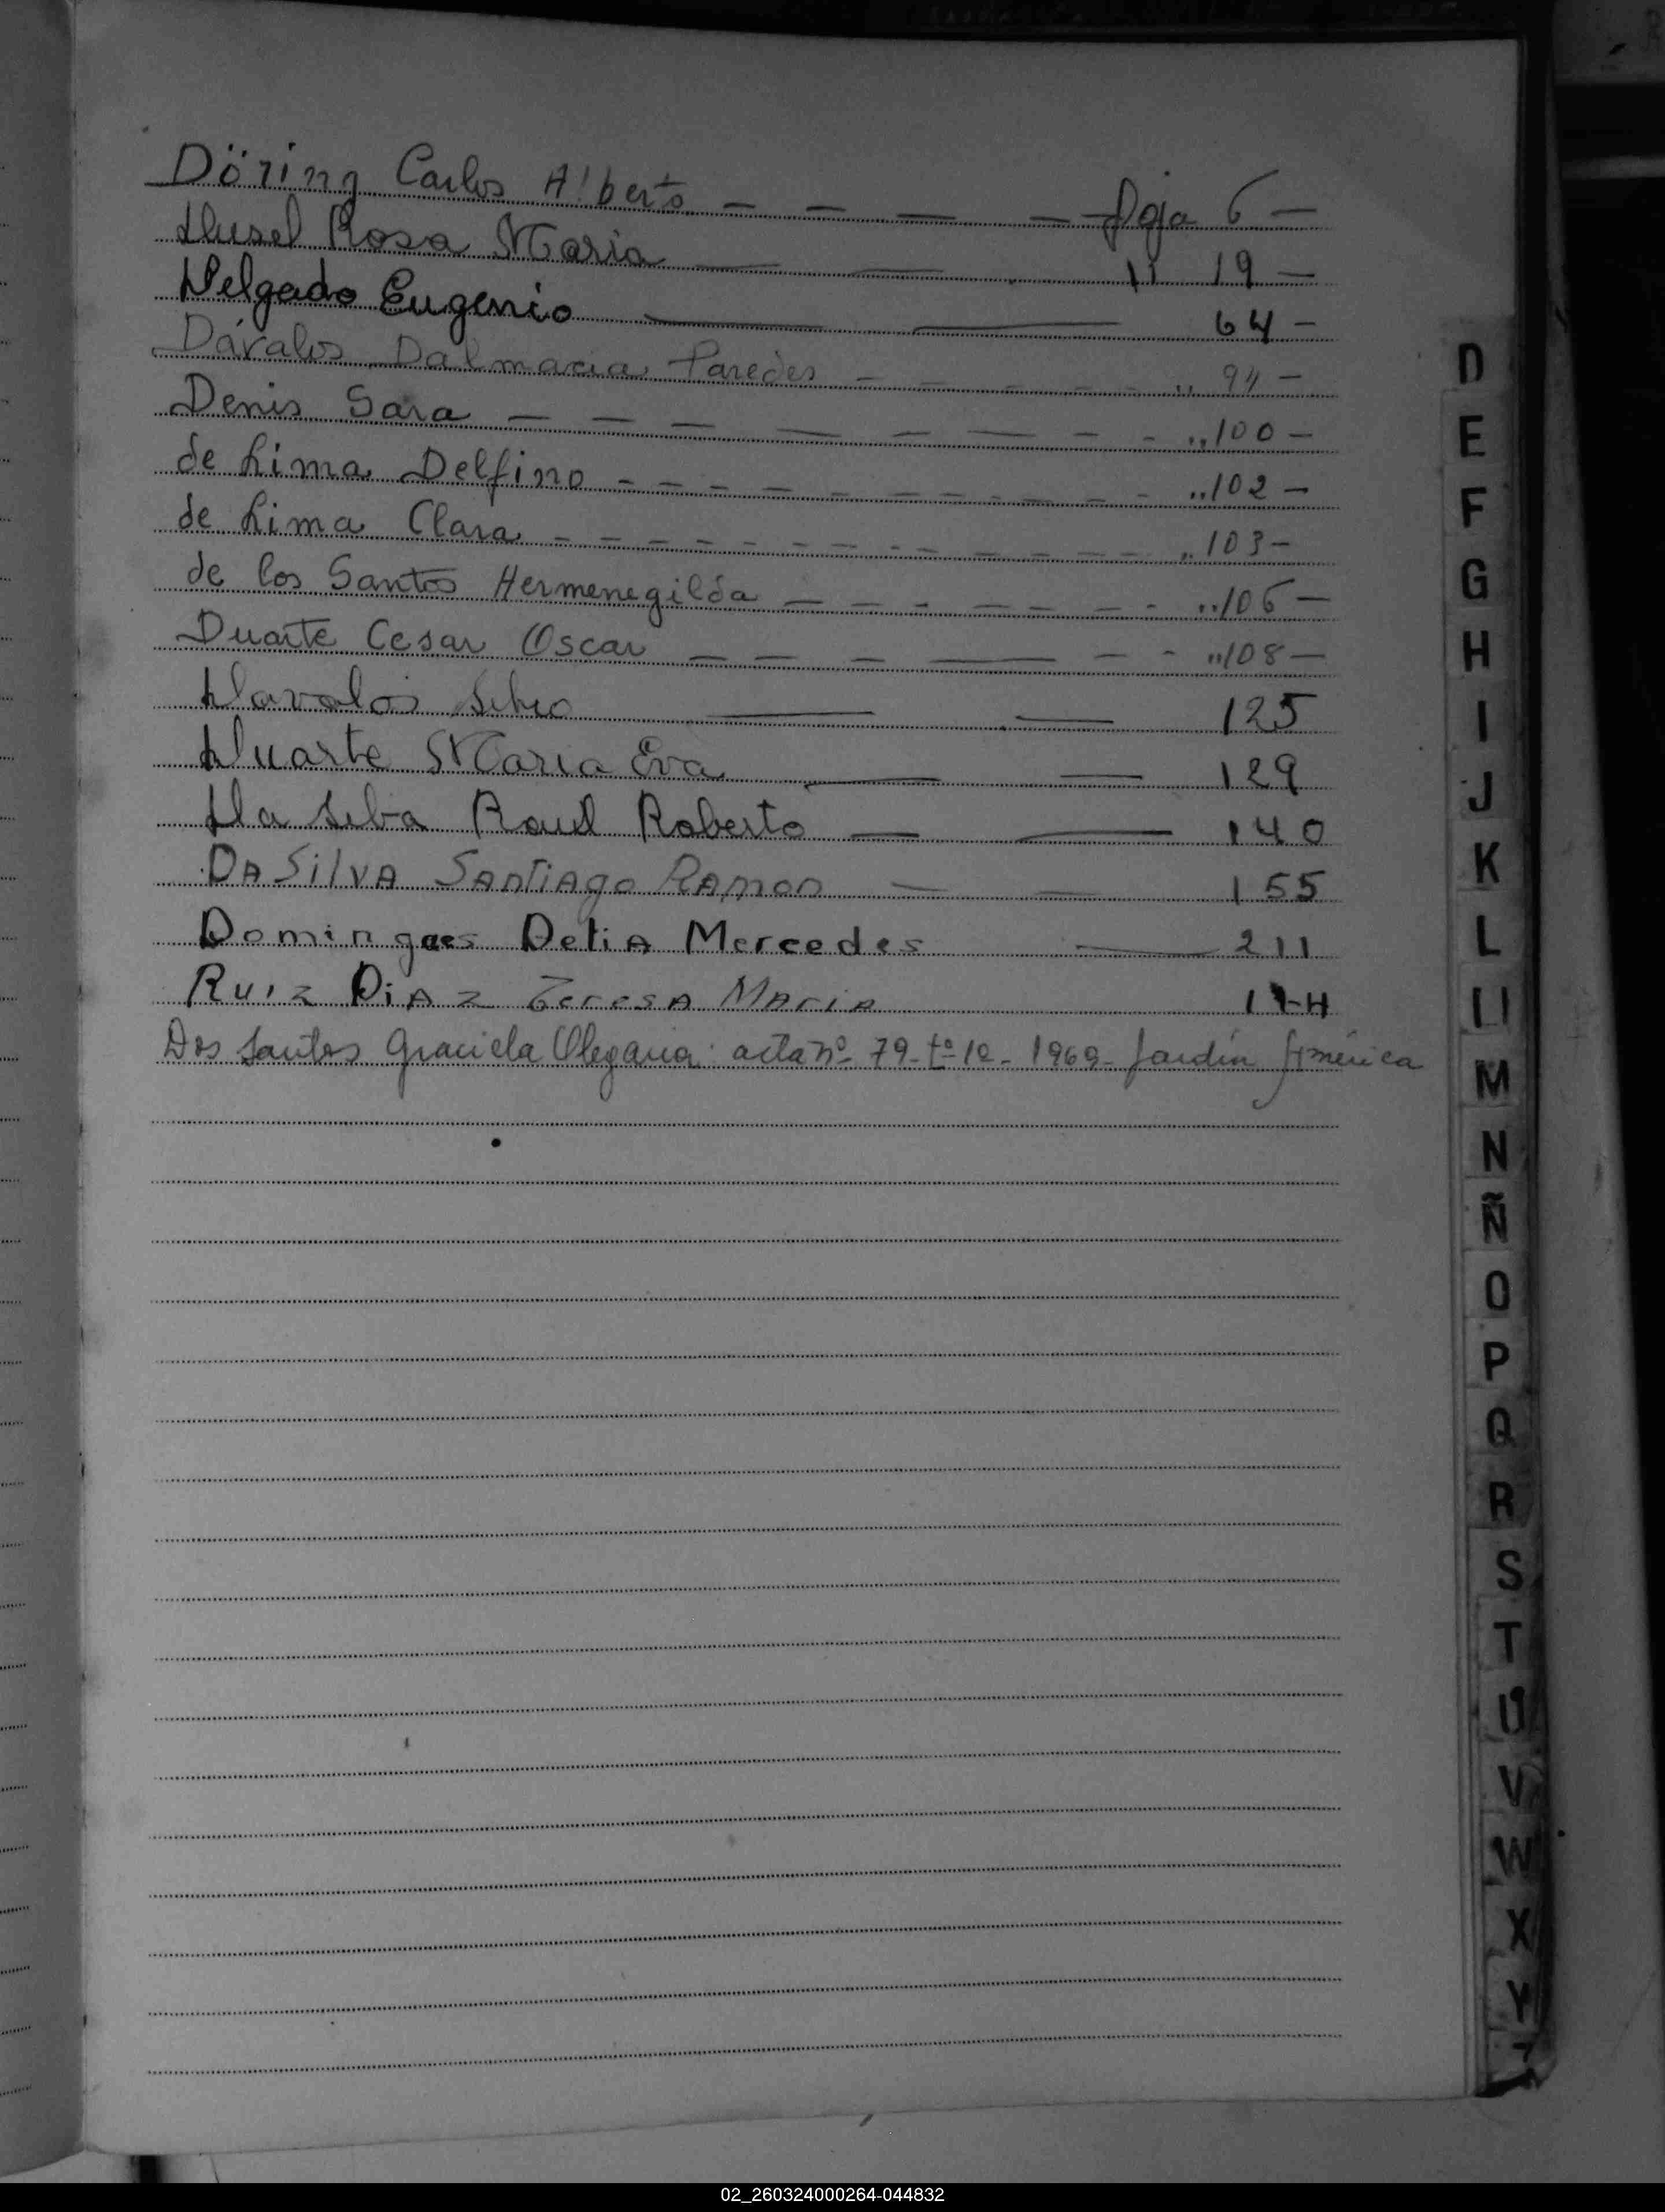 Döring Carlos Alberto — — — — foja 6 —
Dusel Rosa Maria — — " 19 —
Delgado Eugenio — — 64 —
Dávalos Dalmacia Paredes — — — — — " 94 —
Denis Sara — — — — — — — — " 100 —
de Lima Delfino — — — — — — — — — — — " 102 —
de Lima Clara — — — — — — — — — — — — — " 103 —
de los Santos Hermenegilda — — — — — — — " 106 —
Duarte Cesar Oscar — — — — — — " 108 —
Davalos — — 125
Duarte Maria Eva — — 129
Da Silva Raul Roberto — — 140
DA SilVA SANTiAgo RAmon — — 155
Domingues DeliA Mercedes — 211
Ruiz DiAz TeresA MAriA
Dos Santos Graciela Olegaria acta nº 79 - tº 1º - 1969 - Jardín América
D
E
F
G
H
I
J
K
L
Ll
M
N
Ñ
O
P
Q
R
S
T
U
V
W
X
Y
02_260324000264-044832